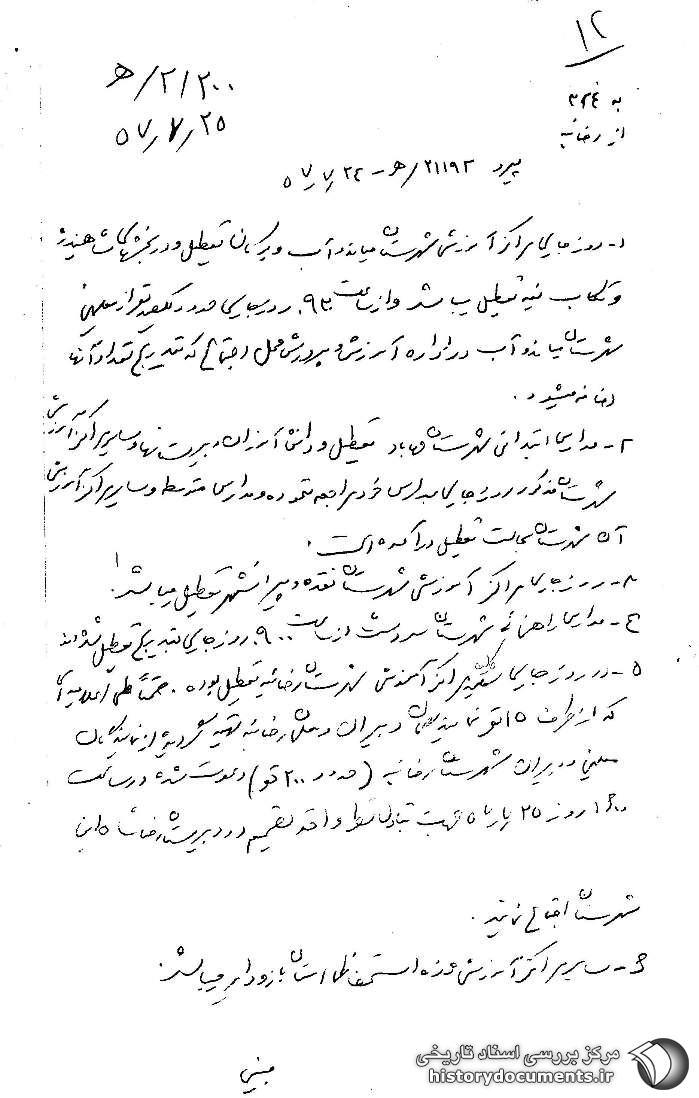 ۱۲
به ۳۲۴
از رضائیه
۲/۲۰۰/ه
۵۷/۷/۲۵
پیرو ۲۱۱۹۲/ه - ۵۷/۷/۲۴
۱- روز جاری مراکز آموزشی شهرستان میاندوآب تعطیل و در
و تکاب نیز تعطیل میباشد و از ساعت ۹۳۰ روز جاری حدود یکصد نفر از معلمین
شهرستان میاندوآب در اداره آموزش و پرورش محل اجتماع که بتدریج تعداد آنها
اضافه میشود.
۲- مدارس ابتدائی شهرستان مهاباد تعطیل و دانش آموزان دبیرستانها و سایر مراکز آموزشی
شهرستان مذکور روز جاری بمدارس خود مراجعه ننموده و مدارس متوسطه و سایر مراکز آموزشی
آن شهرستان بحالت تعطیل درآمده است.
۳- روز جاری مراکز آموزشی شهرستان نقده و پیرانشهر تعطیل میباشد.
۴- مدارس راهنمائی شهرستان سردشت از ساعت ۹۰۰ روز جاری بتدریج تعطیل شده‌اند
۵- در روز جاری کلیه مراکز آموزشی شهرستان رضائیه تعطیل بوده. ضمناً طی اعلامیه‌ای
که از طرف ۱۵ نفر نمایندگان دبیران و معلمان رضائیه تهیه گردیده از نمایندگان
معلمین و دبیران شهرستان رضائیه (حدود ۲۰۰ نفر) دعوت شده در ساعت
۱۶۰۰ روز ۲۵ ماه جهت تبادل نظر و اخذ تصمیم در دبیرستان این
شهرستان اجتماع نمایند.
۶- سایر مراکز آموزشی حوزه استحفاظی استان باز و دایر میباشد.
مبینی
مرکز بررسی اسناد تاریخی
historydocuments.ir